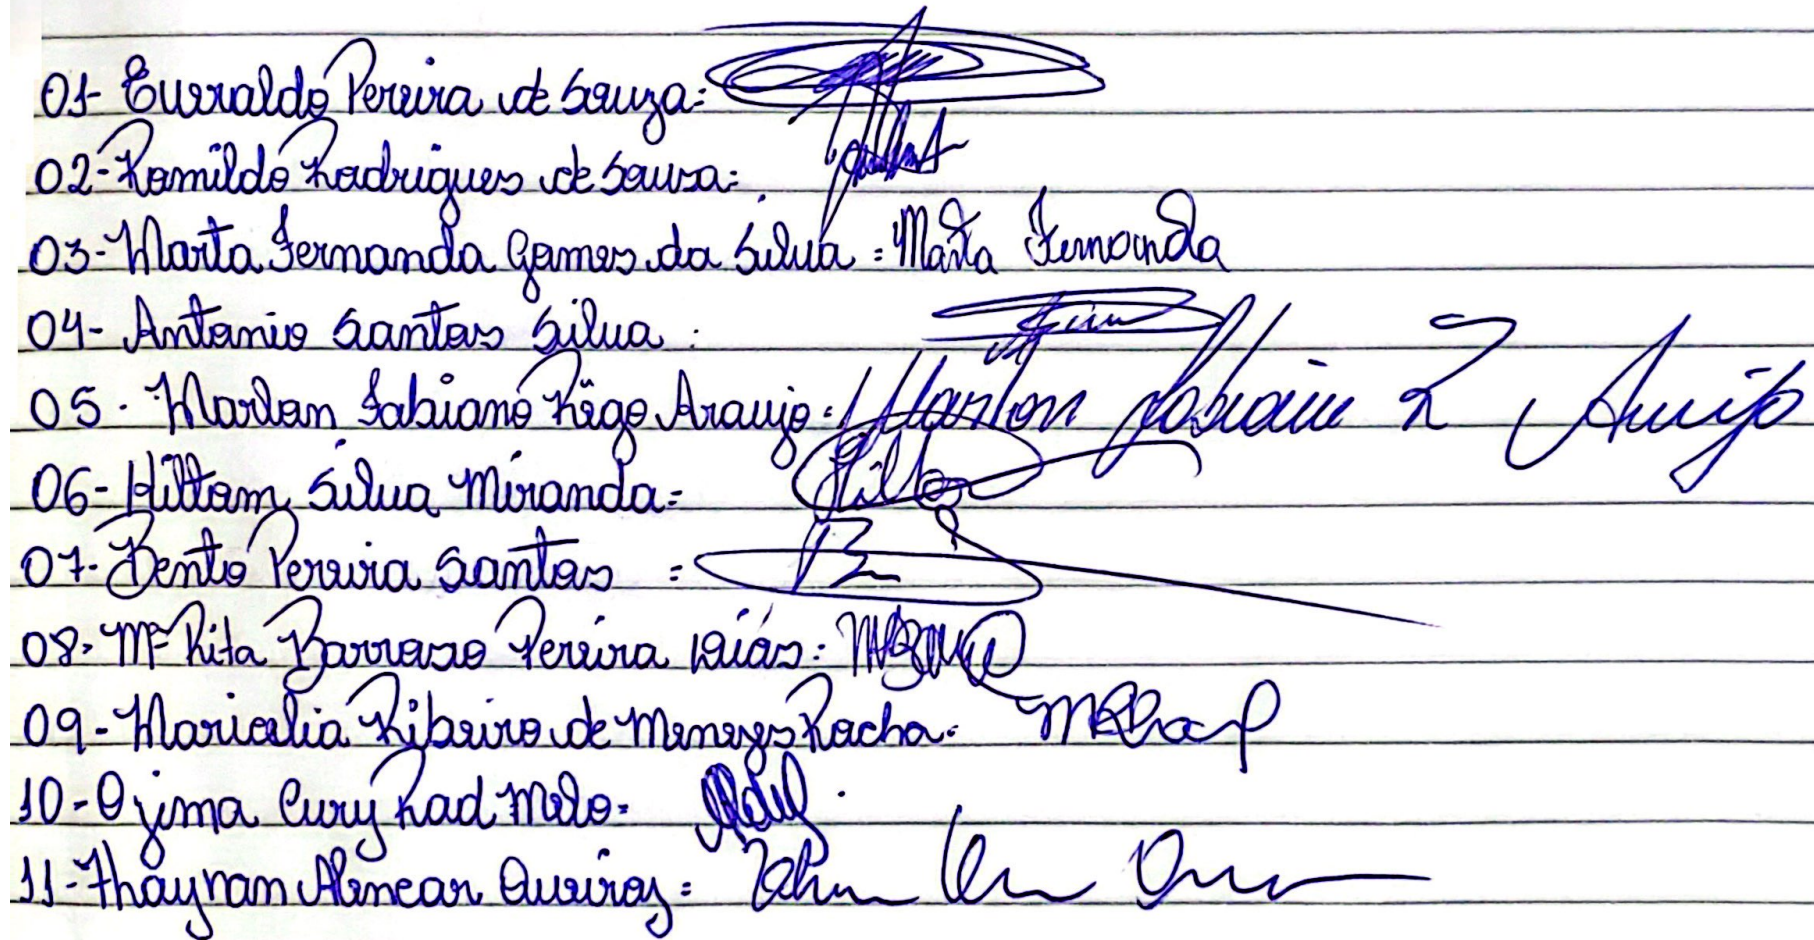 01- Euvaldo Pereira de Souza:
02- Romildo Rodrigues de Sousa:
03- Marta Fernanda Gomes da Silva: Marta Fernanda
04- Antonio Santos Silva:
05- Marlon Fabiano Rêgo Araujo: Marlon Fabiano R Araujo
06- Hiltom Silva Miranda: Hilton
07- Bento Pereira Santos:
08- Mª Rita Barroso Pereira Diás:
09- Maricelia Ribeiro de Menezes Rocha:
10- Ozima Cury Rad Melo:
11- Thaynan Alencar Queiroz: